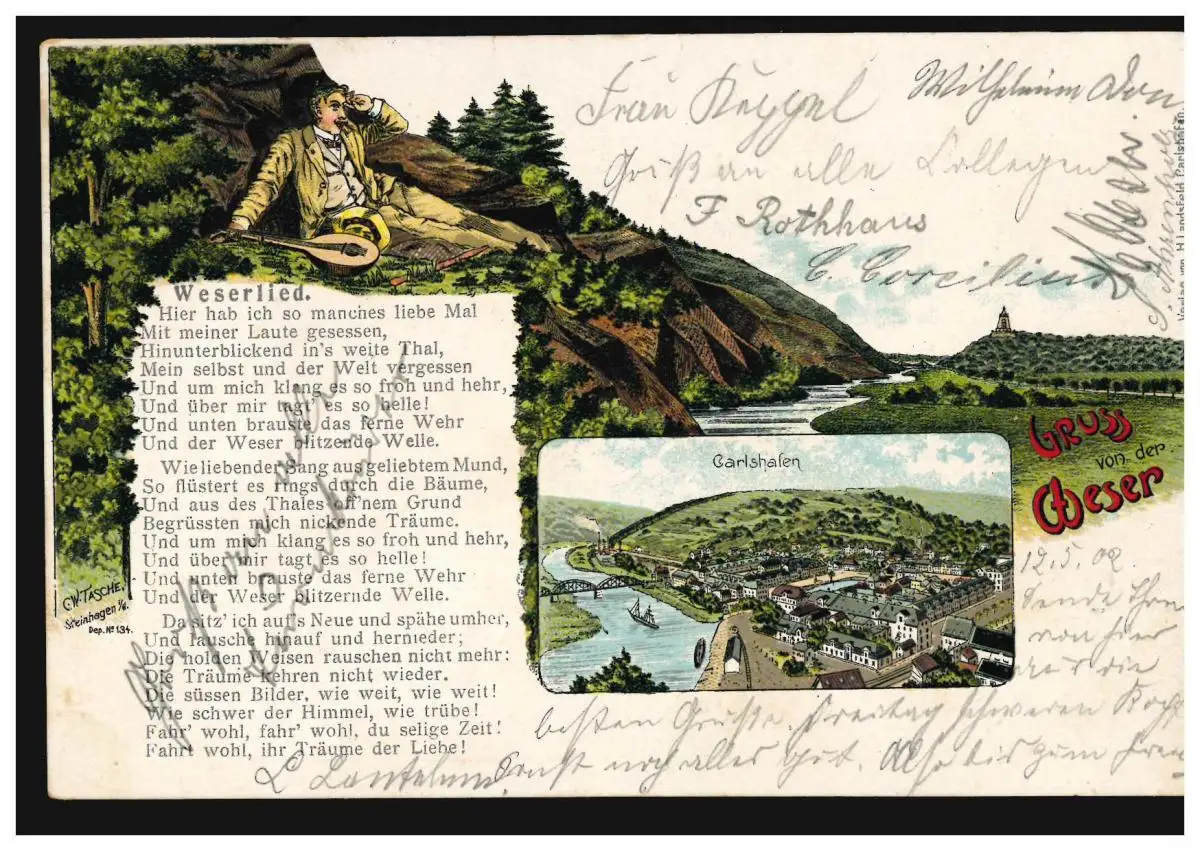 Weserlied.
Hier hab ich so manches liebe Mal
Mit meiner Laute gesessen,
Hinunterblickend in's weite Thal,
Mein selbst und der Welt vergessen
Und um mich klang es so froh und hehr,
Und über mir tagt' es so helle!
Und unten brauste das ferne Wehr
Und der Weser blitzende Welle.
Wie liebender Sang aus geliebtem Mund,
So flüstert es rings durch die Bäume,
Und aus des Thales off'nem Grund
Begrüssten mich nickende Träume.
Und um mich klang es so froh und hehr,
Und über mir tagt es so helle!
Und unten brauste das ferne Wehr
Und der Weser blitzernde Welle.
Da sitz' ich auf's Neue und spähe umher,
Und lausche hinauf und hernieder;
Die holden Weisen rauschen nicht mehr:
Die Träume kehren nicht wieder.
Die süssen Bilder, wie weit, wie weit!
Wie schwer der Himmel, wie trübe!
Fahr' wohl, fahr' wohl, du selige Zeit!
Fahrt wohl, ihr Träume der Liebe!
C.W. TASCHE,
Steinhagen i/W.
Dep. No 134.
Frau Keppel
Gruß an alle Collegen
F Rothhaus
Verlag von H. Landsfeld Carlshafen
GRUSS
von der
WESER
Carlshafen
12.5.02
sende Ihnen
von hier
aus die
besten Grüße. Freitag schweren
sonst noch alles gut. Also bis zum